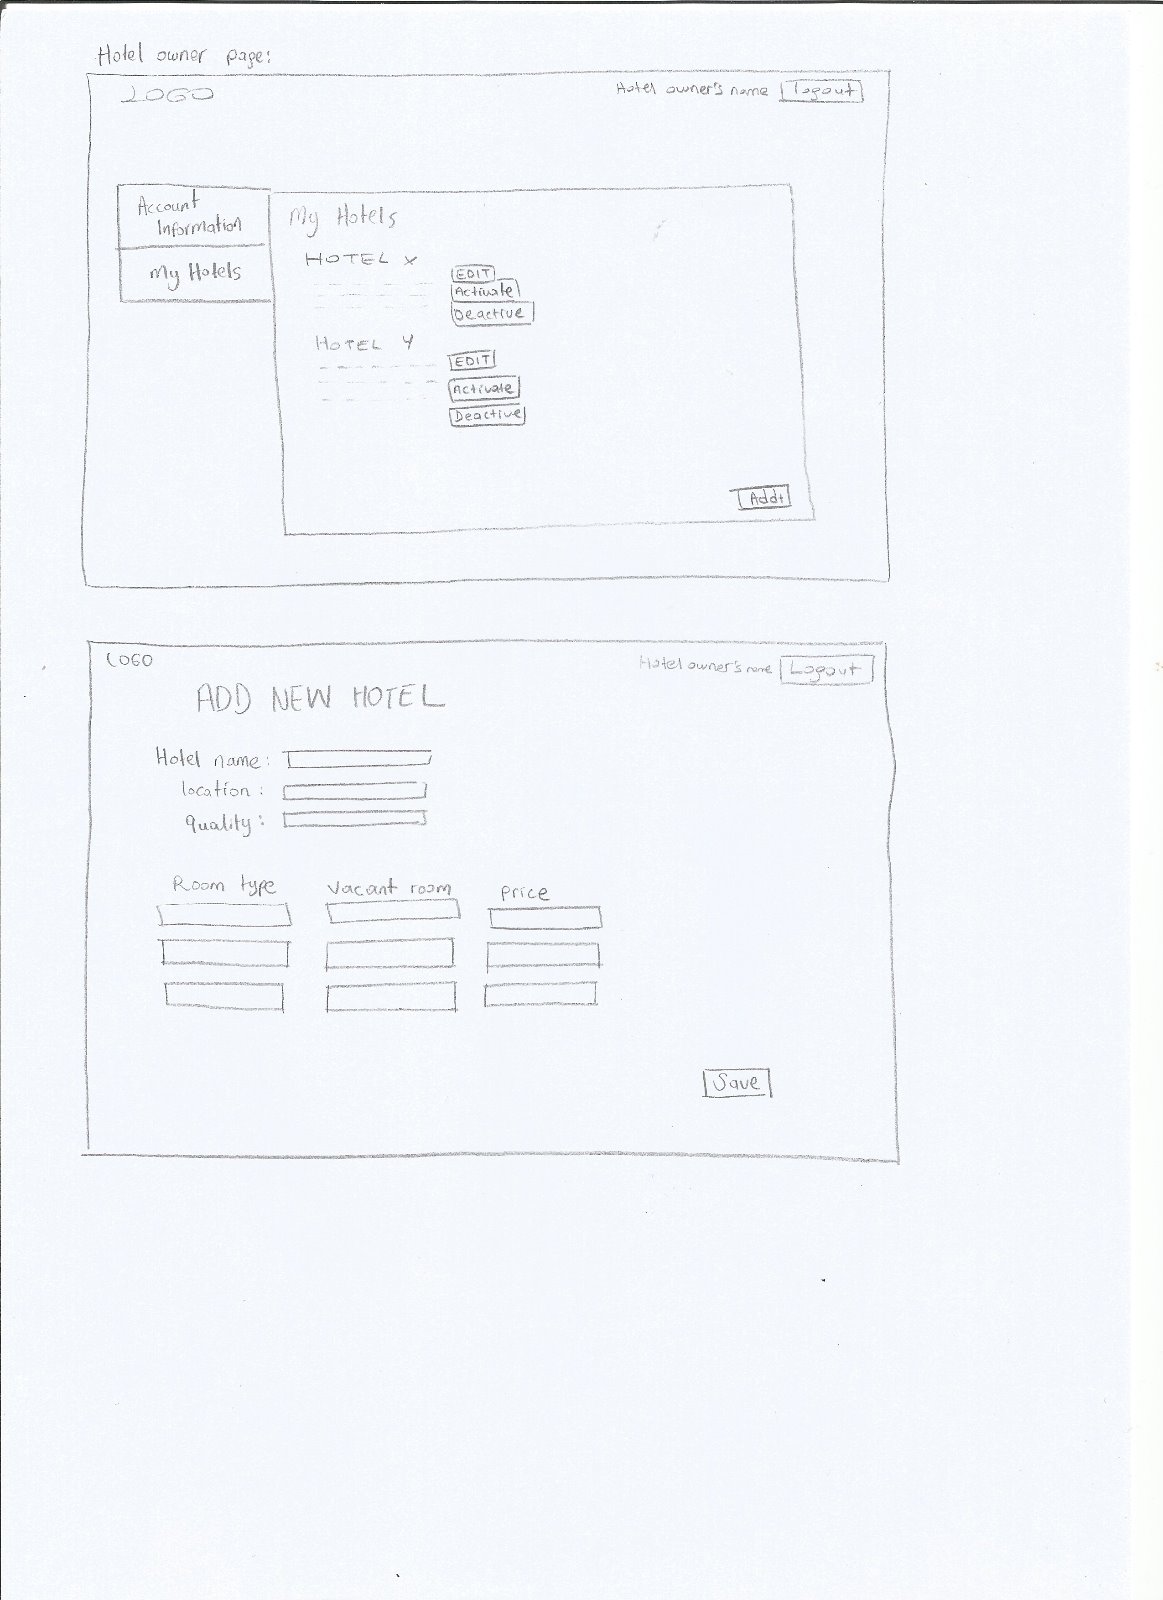 Hotel owner page:
LOGO
Hotel owner's name Logout
Account
Information
My Hotels
My Hotels
HOTEL X
EDIT
Activate
Deactive
HOTEL Y
EDIT
Activate
Deactive
Add+
LOGO
Hotel owner's name Logout
ADD NEW HOTEL
Hotel name:
location:
quality:
Room type Vacant room price
Save